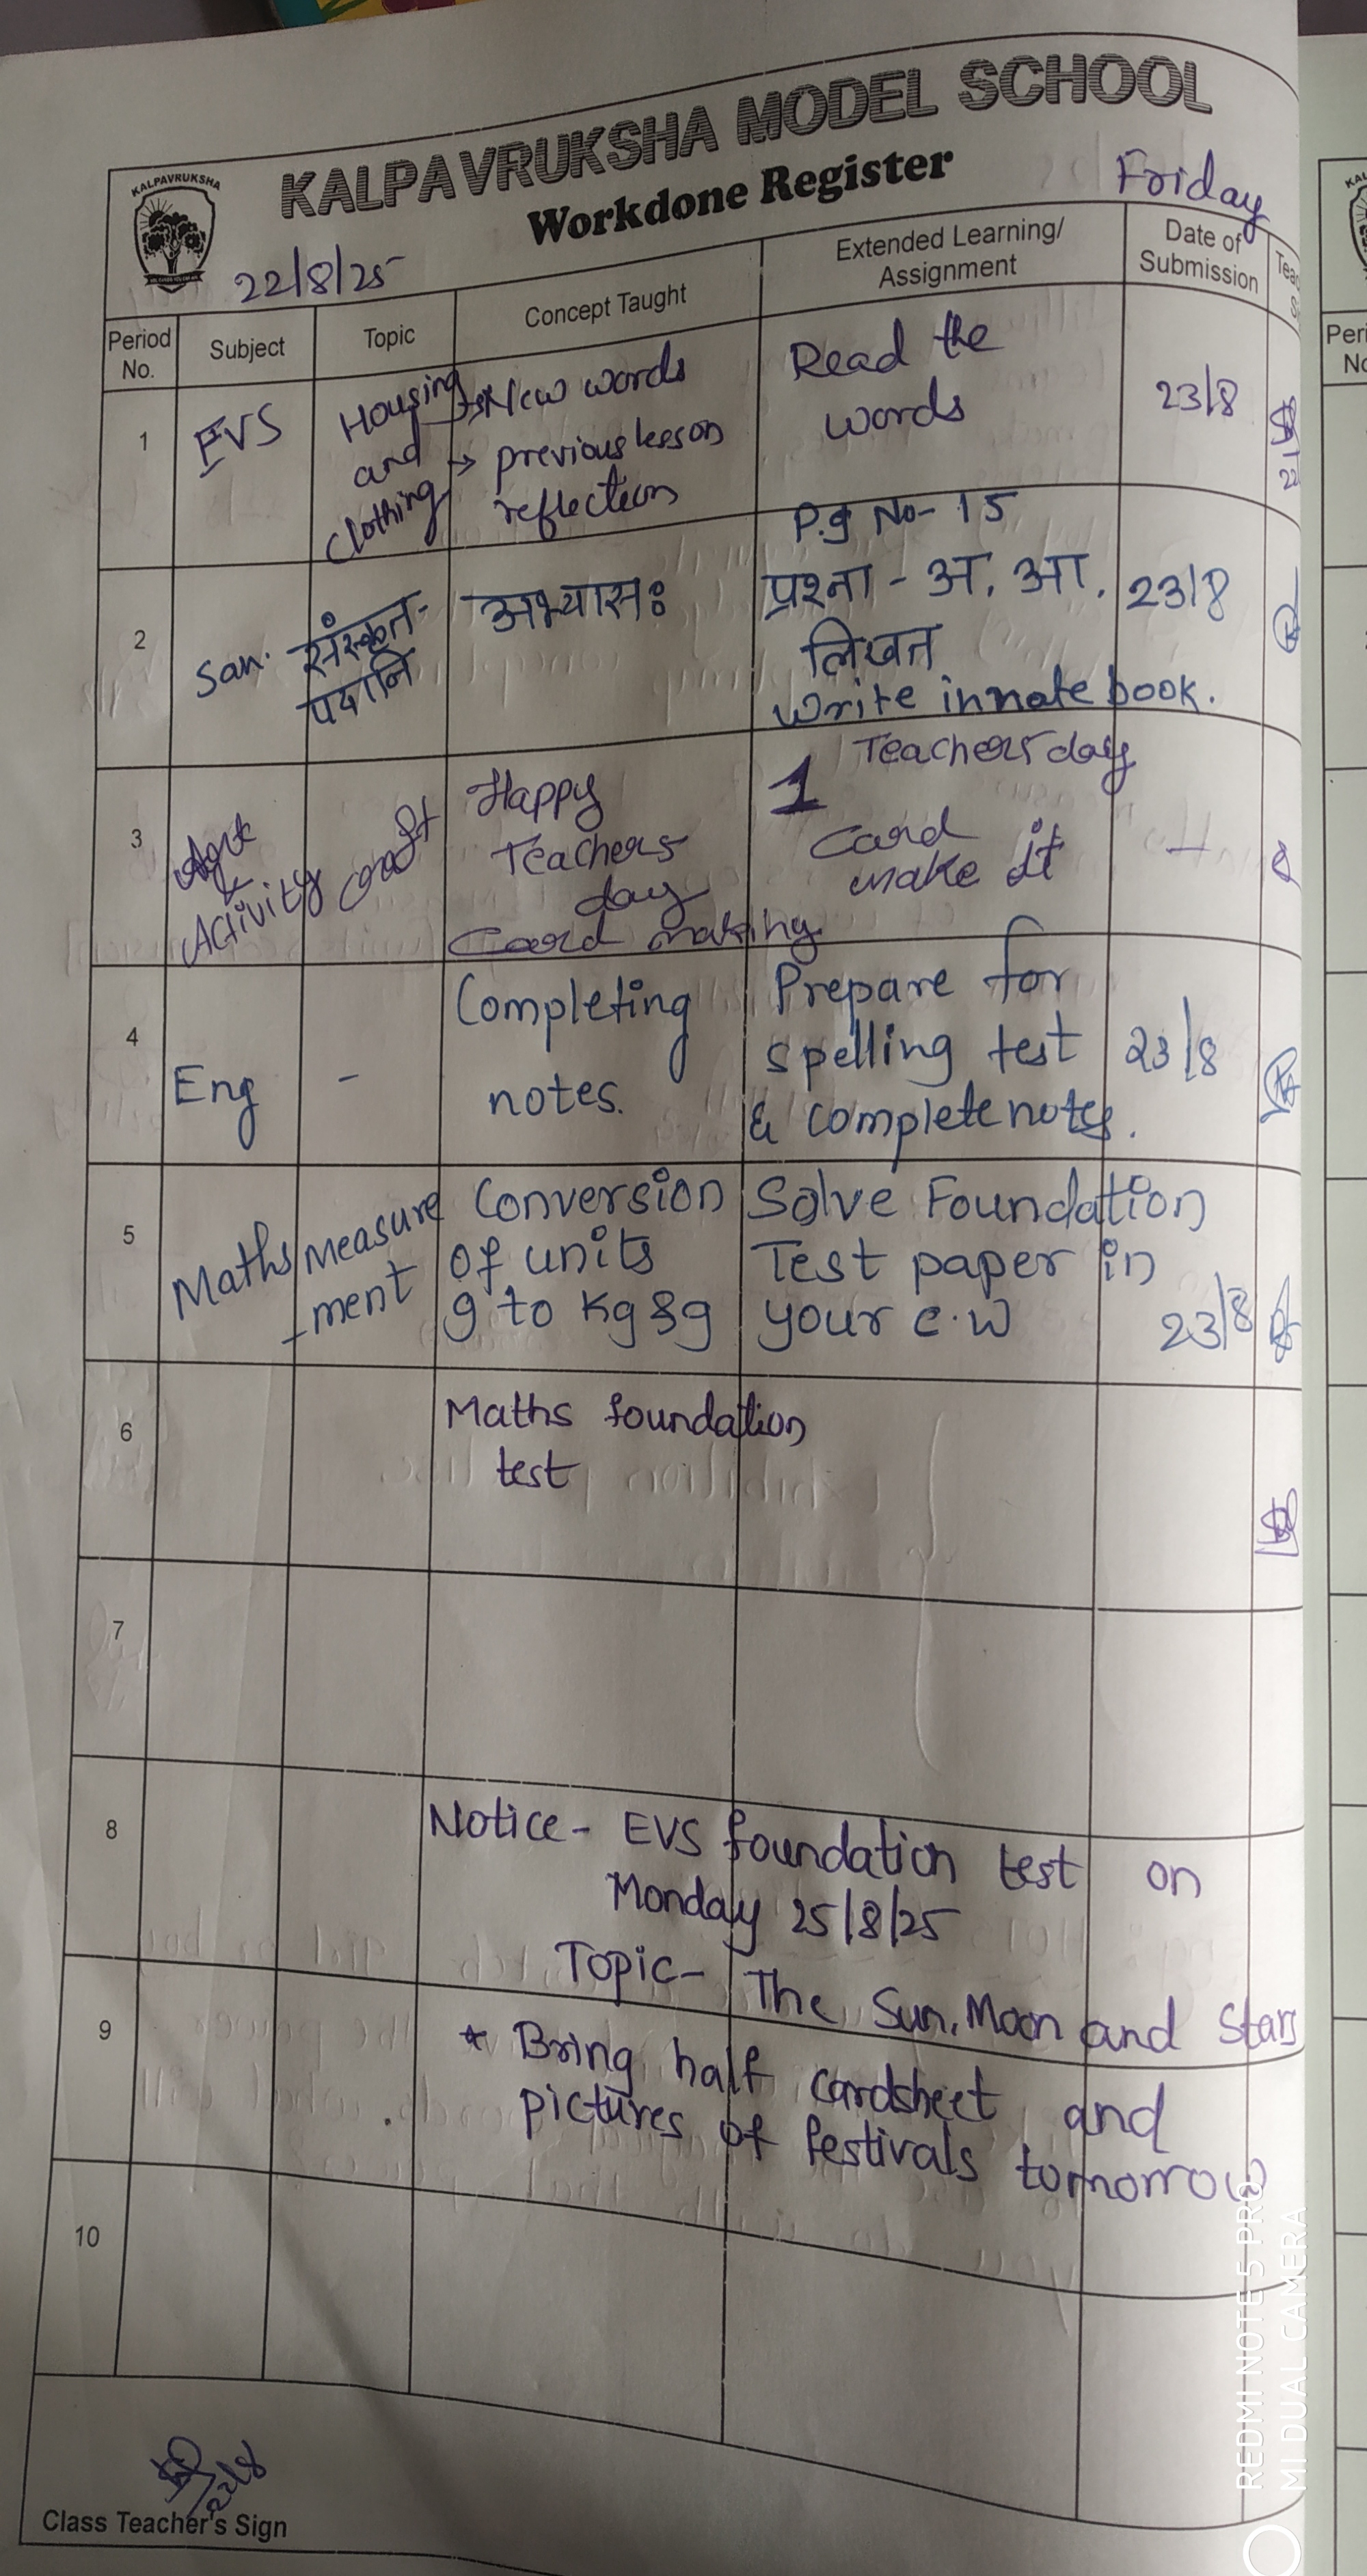 KALPAVRUKSHA MODEL SCHOOL
KALPAVRUKSHA
Workdone Register
Friday
22/8/25
Period No.
Subject
Topic
Concept Taught
Extended Learning/
Assignment
Date of
Submission
1
EVS
Housing
and
clothing
→ New words
→ previous lesson
reflection
Read the
words
23/8
2
San.
संस्कृत-
पदानि
अभ्यासः
P.g No- 15
प्रश्ना - अ. आ.
लिखत
write in note book.
23/8
3
Art
&
Activity
craft
Happy
Teachers
day
Card making
1 Teachers day
Card
make it
-
4
Eng
-
Completing
notes.
Prepare for
spelling test
& complete notes.
23/8
5
Maths
Measure
-ment
Conversion
of units
g to kg & g
Solve Foundation
Test paper in
your c.w
23/8
6
Maths foundation
test
7
8
Notice - EVS foundation test on
Monday 25/8/25
Topic - The Sun, Moon and Stars
9
* Bring half cardsheet and
pictures of festivals tomorrow
10
Class Teacher's Sign
REDMI NOTE 5 PRO
MI DUAL CAMERA